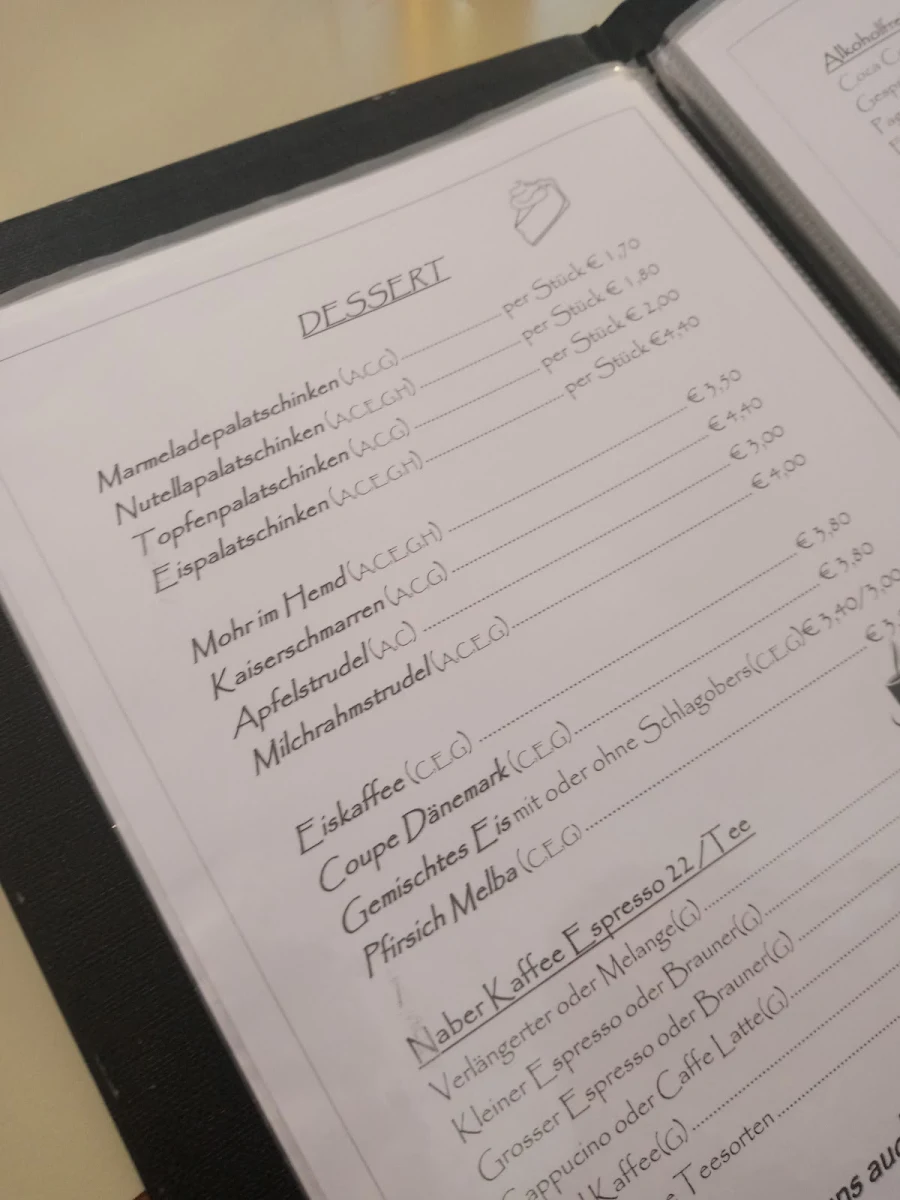 DESSERT
Marmeladepalatschinken(ACG) per Stück € 1,70
Nutellapalatschinken(ACEGH) per Stück € 1,80
Topfenpalatschinken(ACG) per Stück € 2,00
Eispalatschinken(ACEGH) per Stück €4,40
Mohr im Hemd(ACEGH) €3,50
Kaiserschmarren(ACG) € 4,40
Apfelstrudel(AC) € 3,00
Milchrahmstrudel(ACEG) € 4,00
Eiskaffee(CEG) € 3,80
Coupe Dänemark(CEG) € 3,80
Gemischtes Eis mit oder ohne Schlagobers(CEG)€ 3,40/3,00
Pfirsich Melba(CEG) €3,
Naber Kaffee Espresso 22 /Tee
Verlängerter oder Melange(G)
Kleiner Espresso oder Brauner(G)
Grosser Espresso oder Brauner(G)
Cappucino oder Caffe Latte(G)
Kaffee(G)
Teesorten
Coca